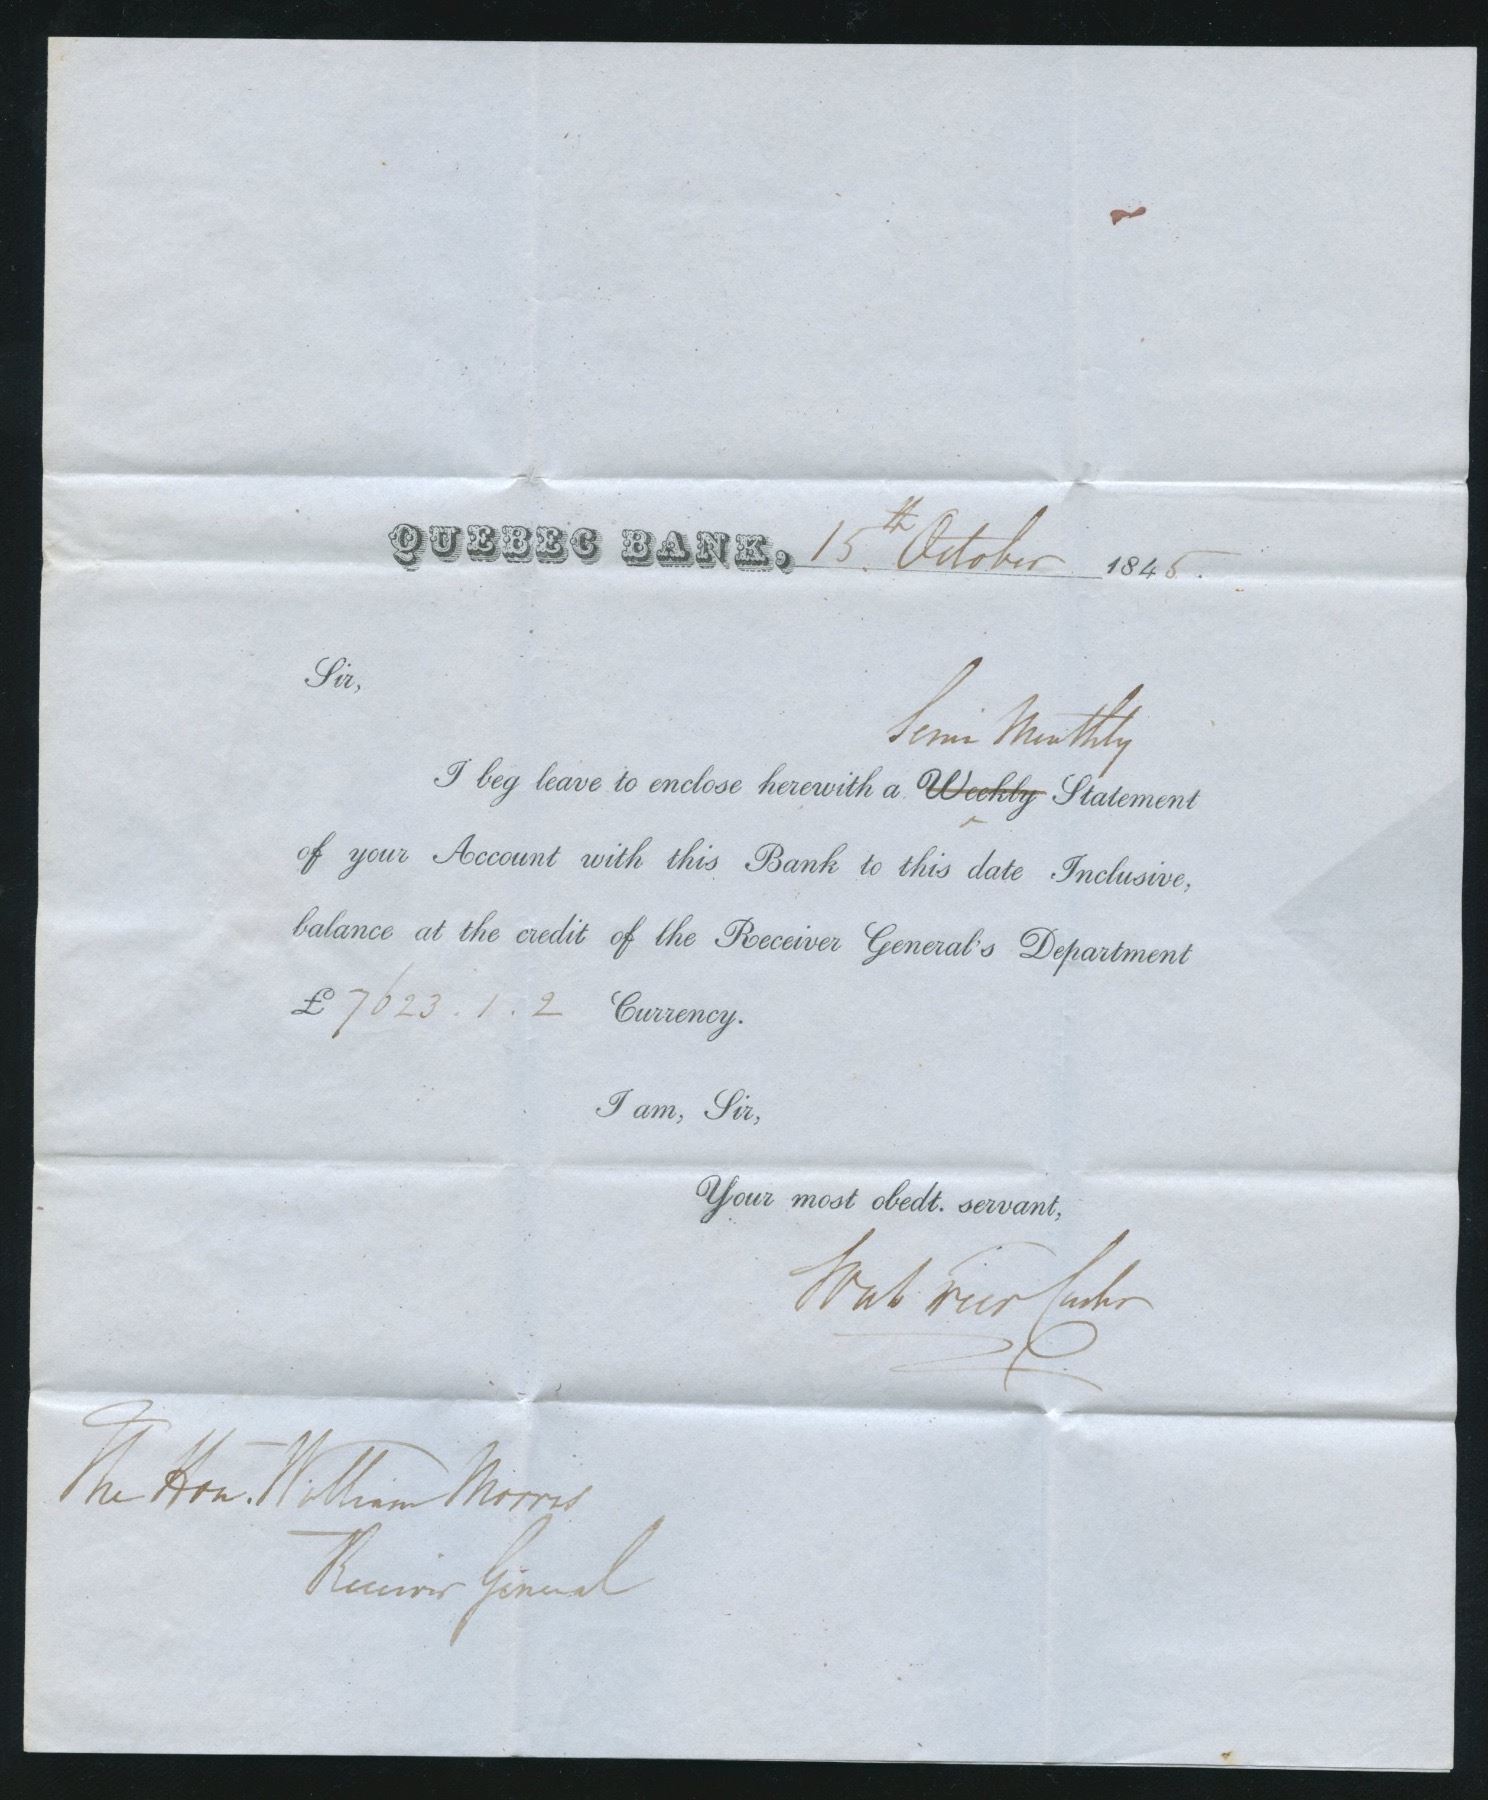 QUEBEC BANK, 15th October 1845.
Sir,
Semi Monthly
I beg leave to enclose herewith a Weekly Statement
of your Account with this Bank to this date Inclusive,
balance at the credit of the Receiver General's Department
£ 7623 . 1 . 2 Currency.
I am, Sir,
Your most obedt. servant,
Cashr
The Hon. William Morris
Receiver General